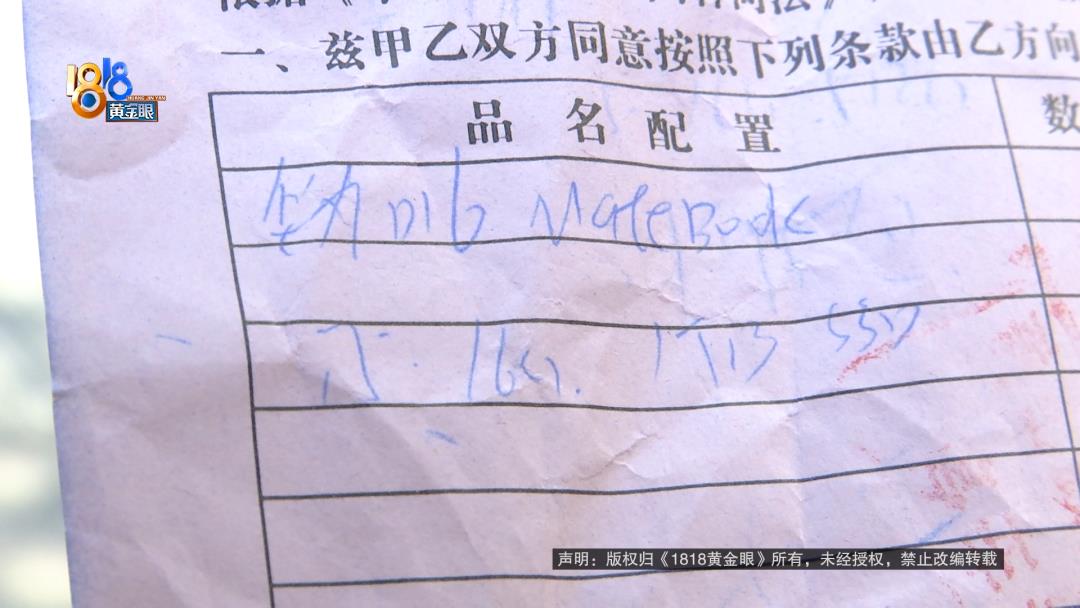 一、兹甲乙双方同意按照下列条款由乙方向
1818
HUANG JIN YAN
黄金眼
品名配置 数
华为D16 MateBook
i5. 16G. 1TB SSD
声明：版权归《1818黄金眼》所有，未经授权，禁止改编转载